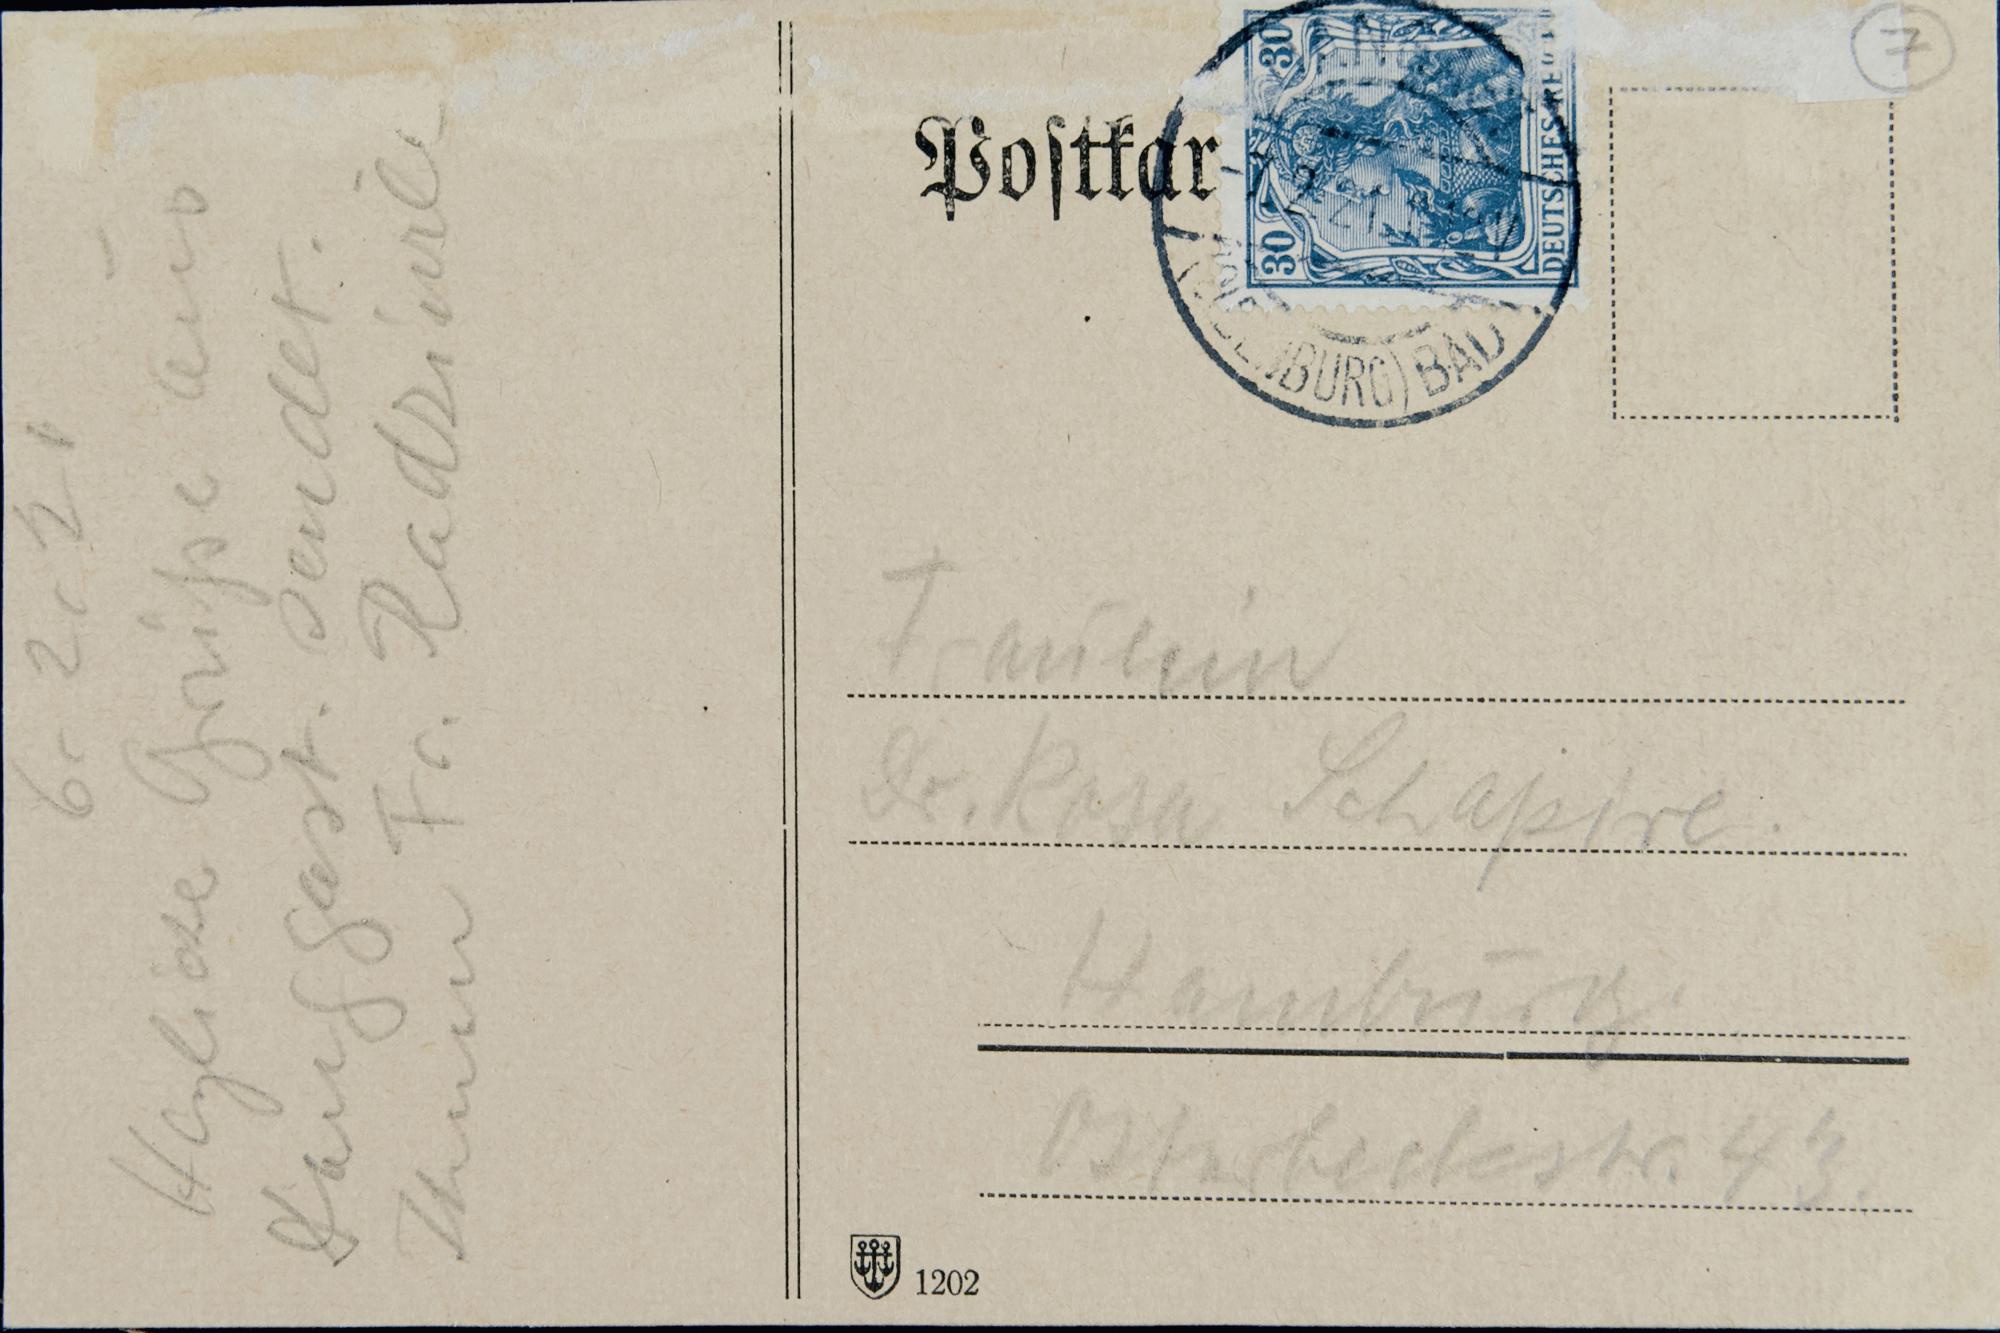 6. 2. 21
Herzliche Grüße aus
Dangast. sendet.
Ihnen Fr. Radziwill
Postkar
30 30
DEUTSCHES RE
2.21
BURG) BAD
7
Fräulein
Dr. Rosa Schapire.
Hamburg.
Osterbeckstr. 43.
1202